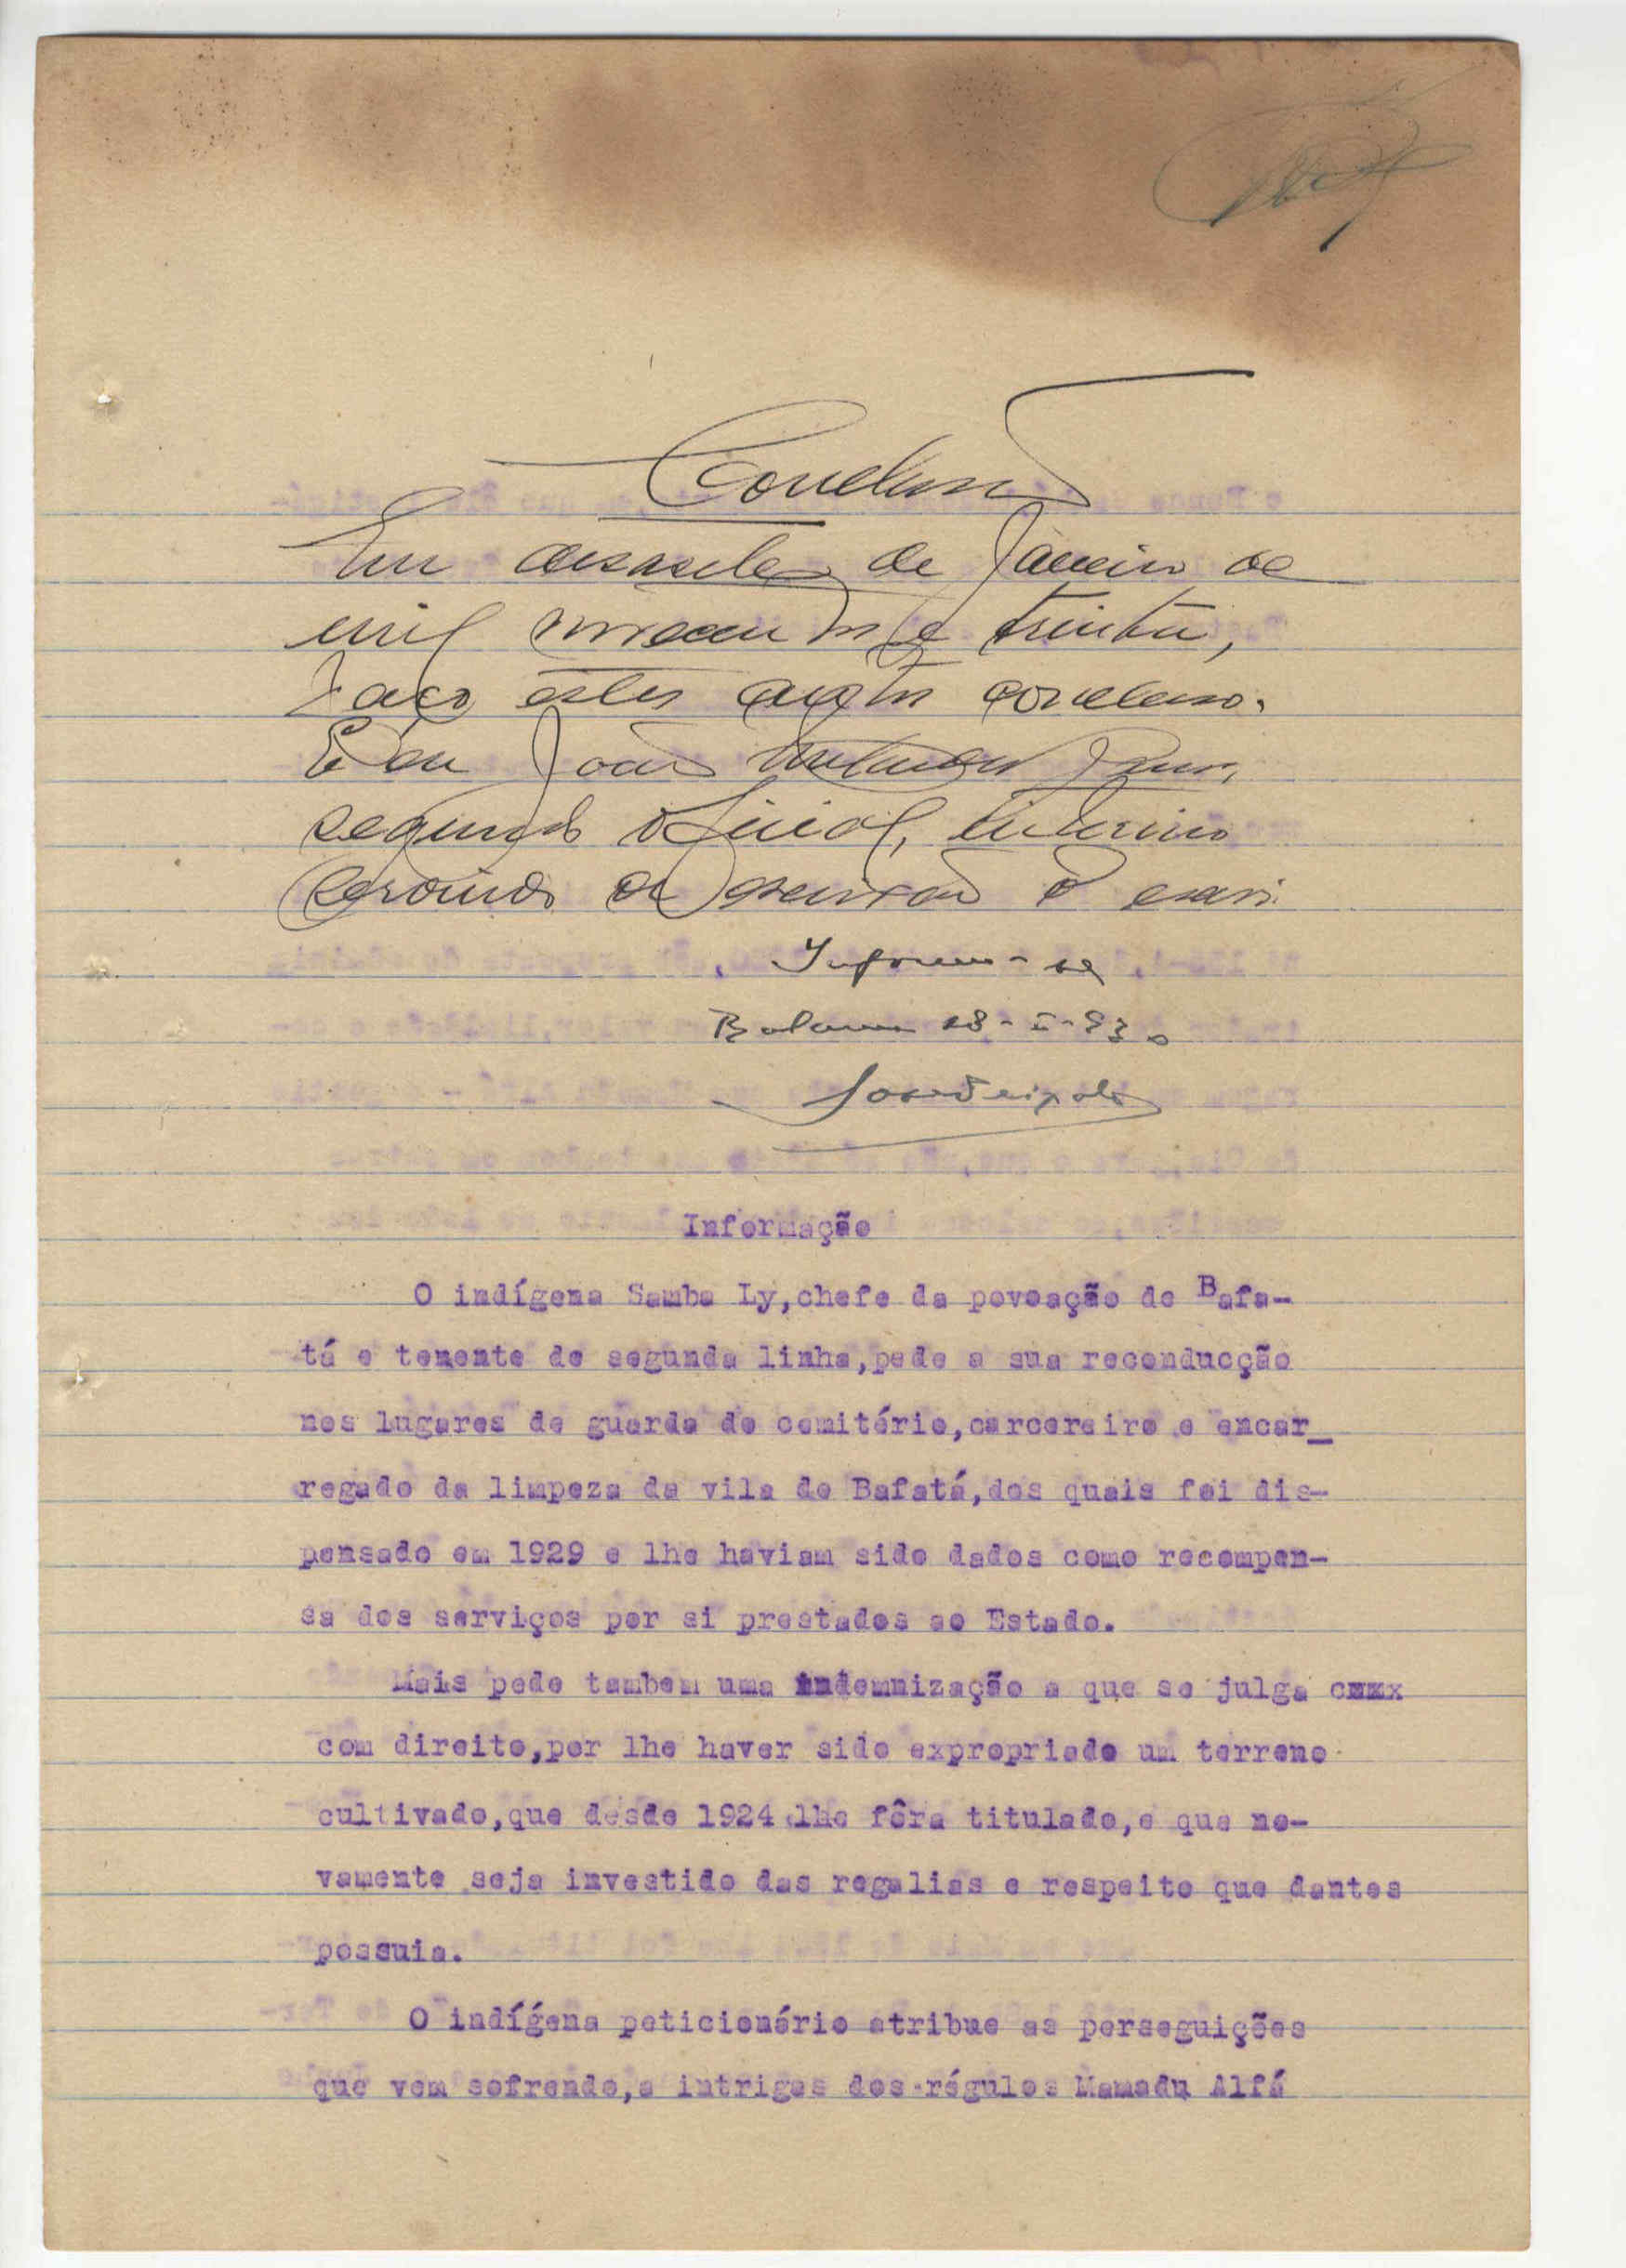 Conclusos
Em desasete de Janeiro de
mil novecentos e trinta,
faço estes autos conclusos.
E eu João
segundo oficial, interino
servindo de escrivão o escrevi
Informe-se
Bolama 18-I-930
Informação
O indígena Samba Ly,chefe da povoação de Bafa-
tá e tenente de segunda linha,pede a sua reconducção
nos lugares de guarda do cemitério,carcereiro e encar_
regado da limpeza da vila de Bafatá,dos quais foi dis-
pensado em 1929 e lhe haviam sido dados como recompen-
sa dos serviços por si prestados ao Estado.
Mais pede tambem uma indemnização a que se julga cxxx
com direito,por lhe haver sido expropriado um terreno
cultivado,que desde 1924 lhe fôra titulado,e que no-
vamente seja investido das regalias e respeito que dantes
possuia.
O indígena peticionário atribue as perseguições
que vem sofrendo,a intrigas dos régulos Mamadu Alfá